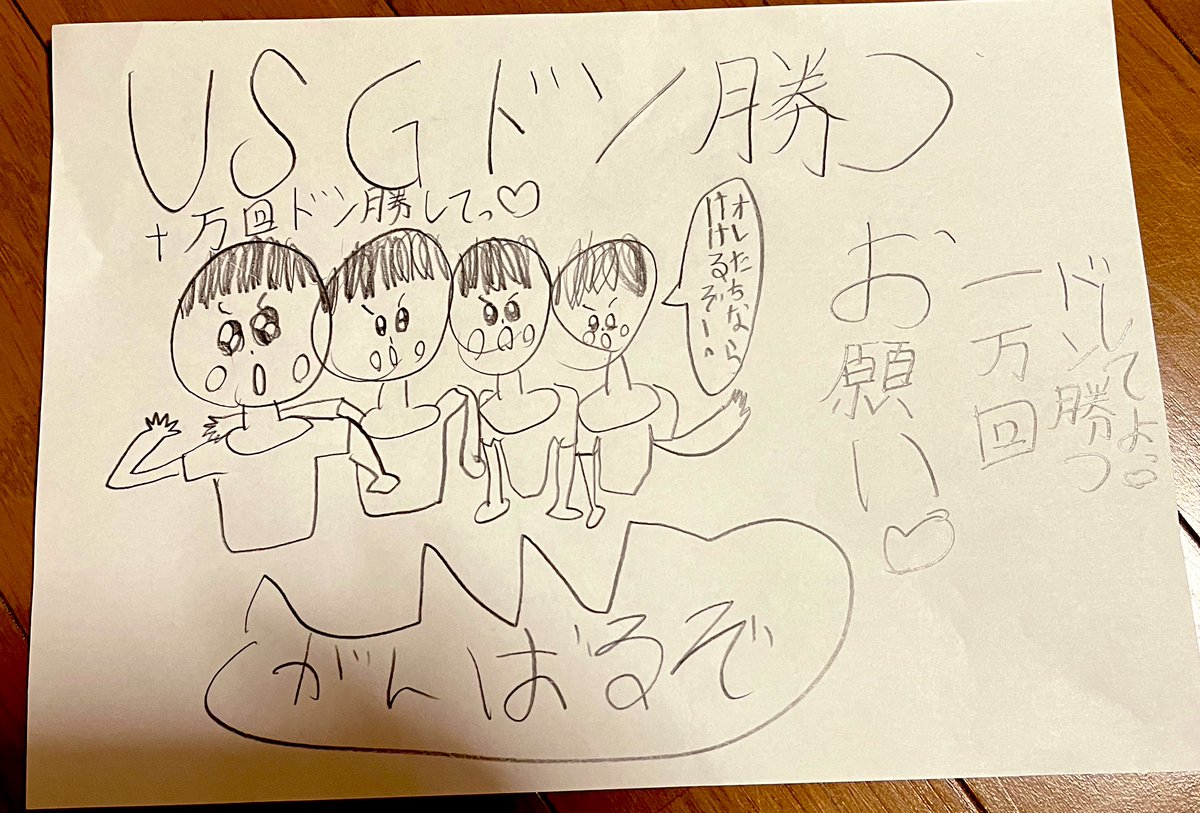 USGドン勝つ
十万回ドン勝してっ♡
オレたちなら
お願い♡
一万回
ドン勝つ
してよっ♡
がんばるぞ